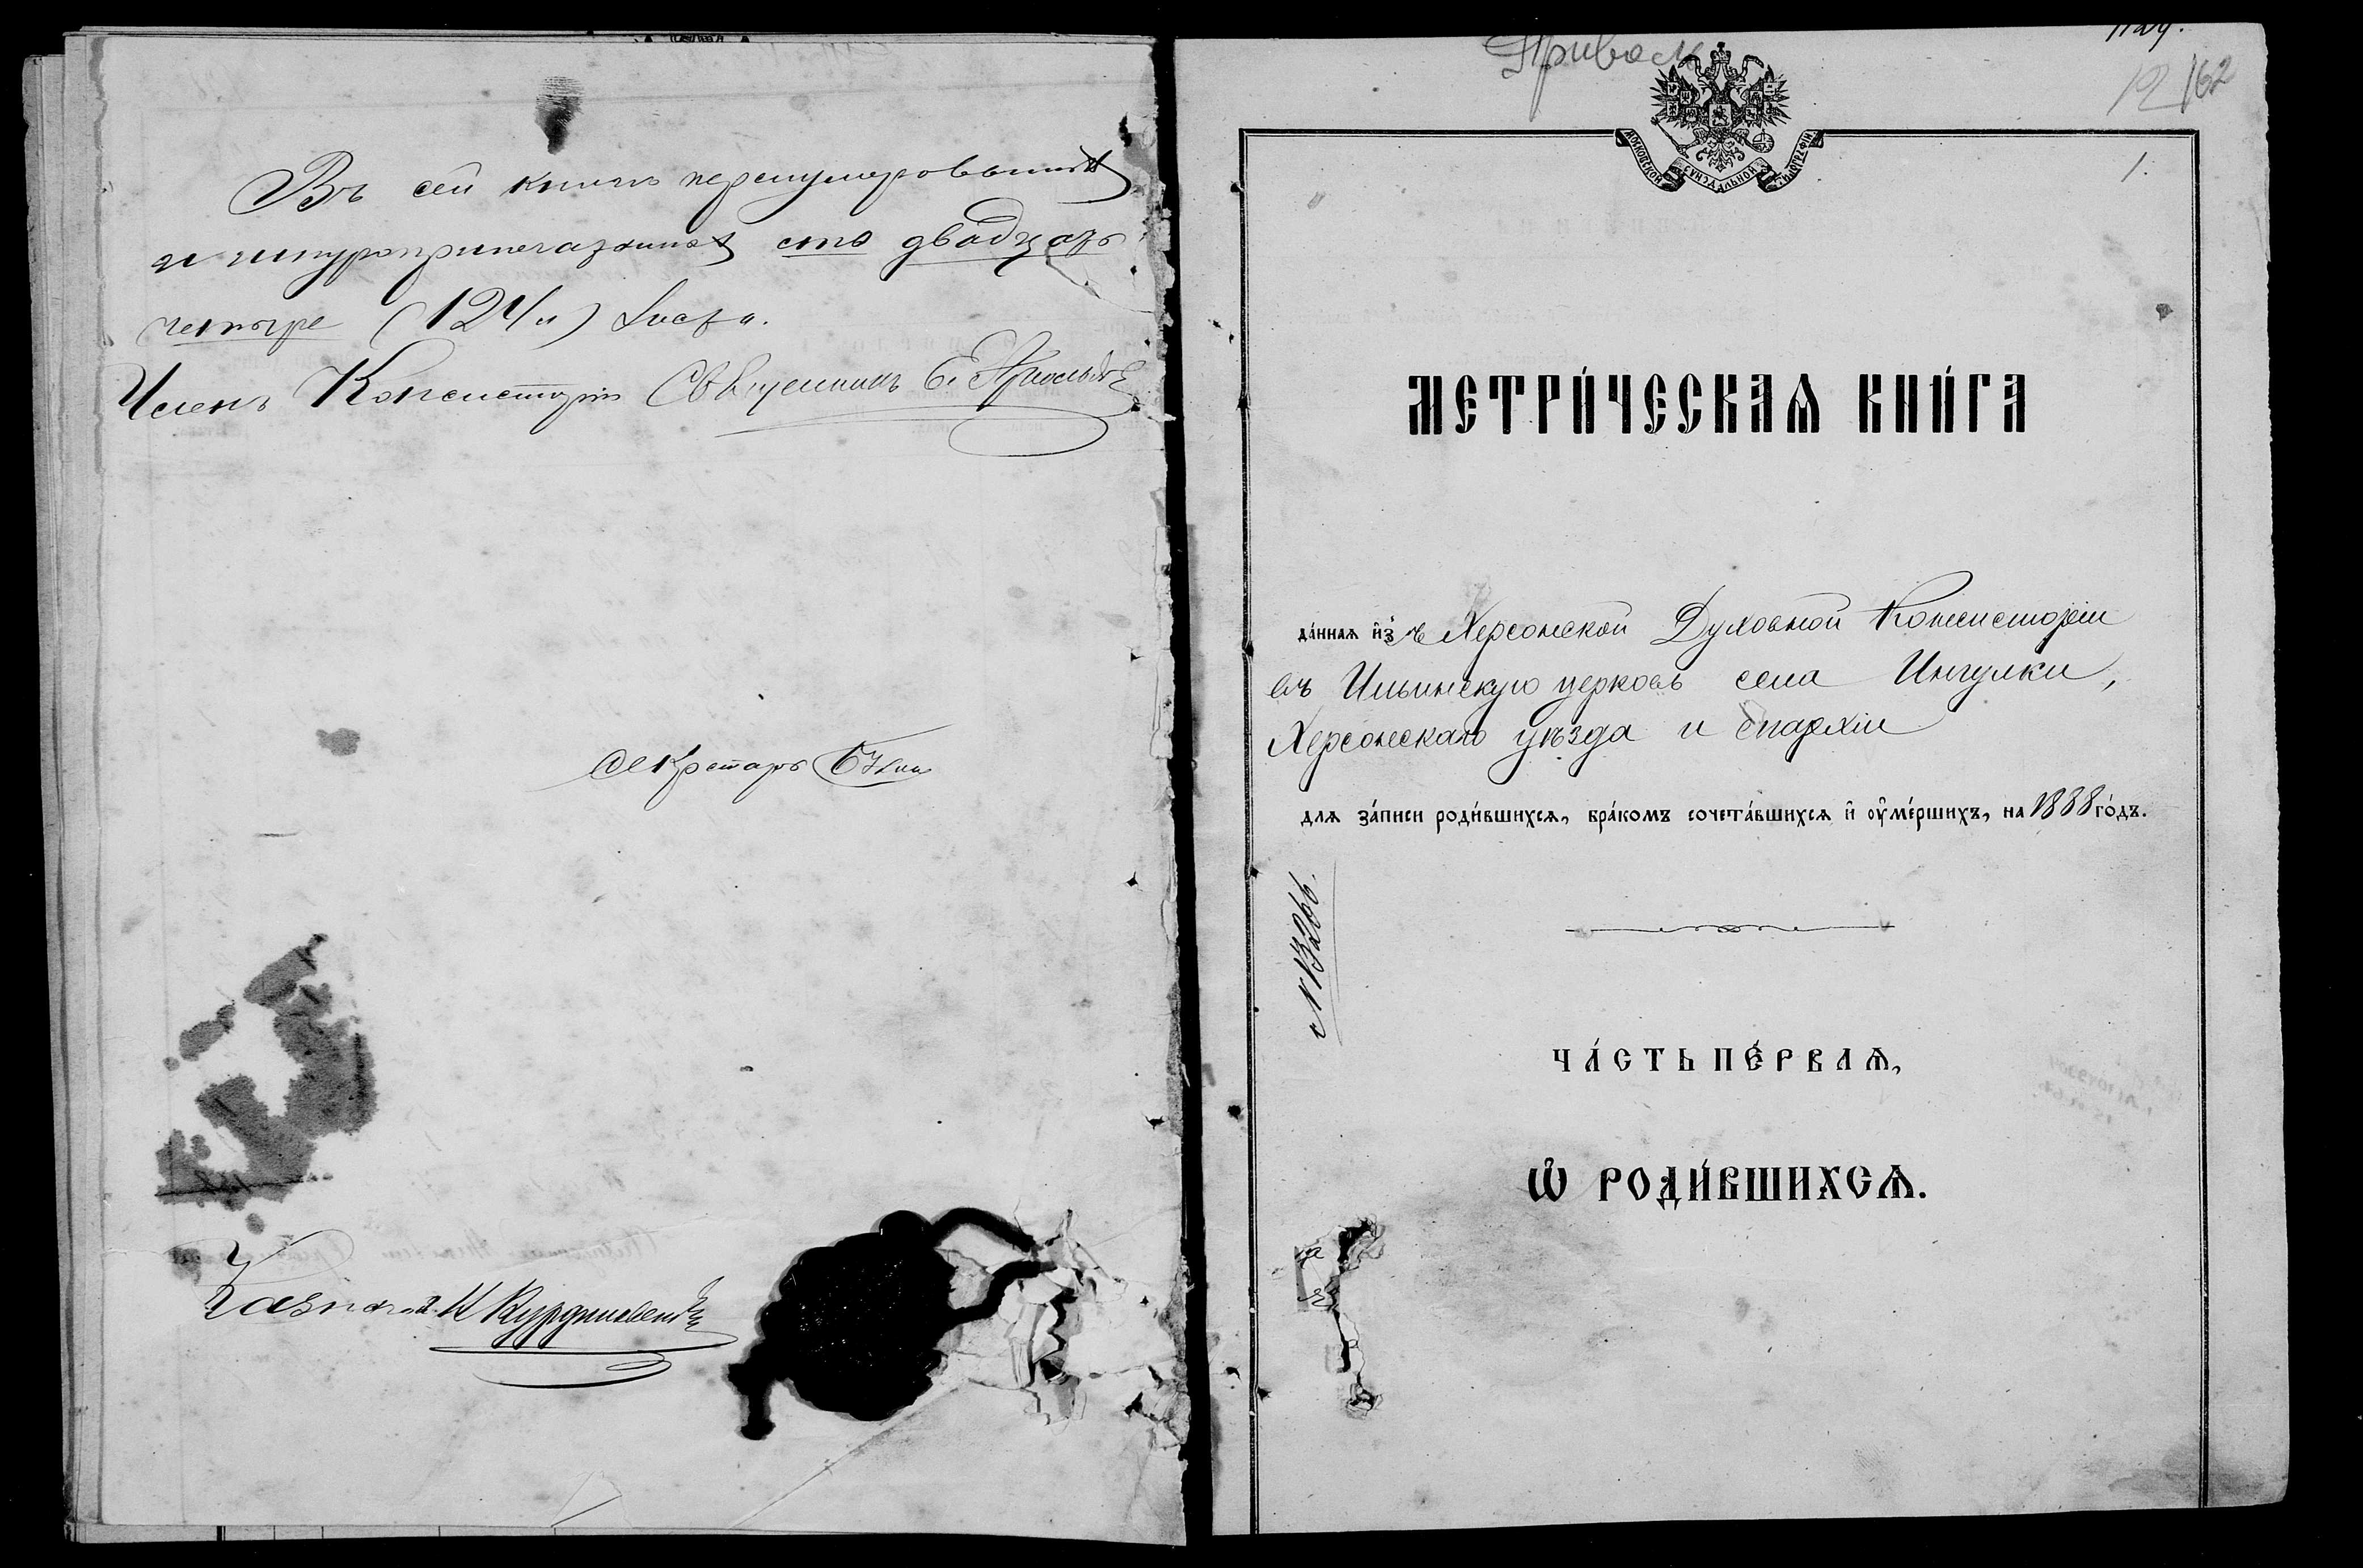 Въ сей книгѣ перенумерованныхъ
и шнуроприпечатанныхъ сто двадцать
четыре (124) листа.
Членъ Консисторіи Священникъ
Секретарь
Казначей
1.
МЕТРИ́ЧЕСКАѦ КНИ́ГА
да́нная и҆зъ Херсонской Духовной Консисторіи
въ Ильинскую церковь села Ингулки,
Херсонскаго уѣзда и епархіи
для за́писи роди́вшихсѧ, бра́комъ сочета́вшихсѧ и҆ ᲂу҆ме́ршихъ, на 1888 го́дъ.
№ 13266.
ЧА́СТЬ ПЕ́РВАѦ,
Ѡ҆ РОДИ́ВШИХСѦ.